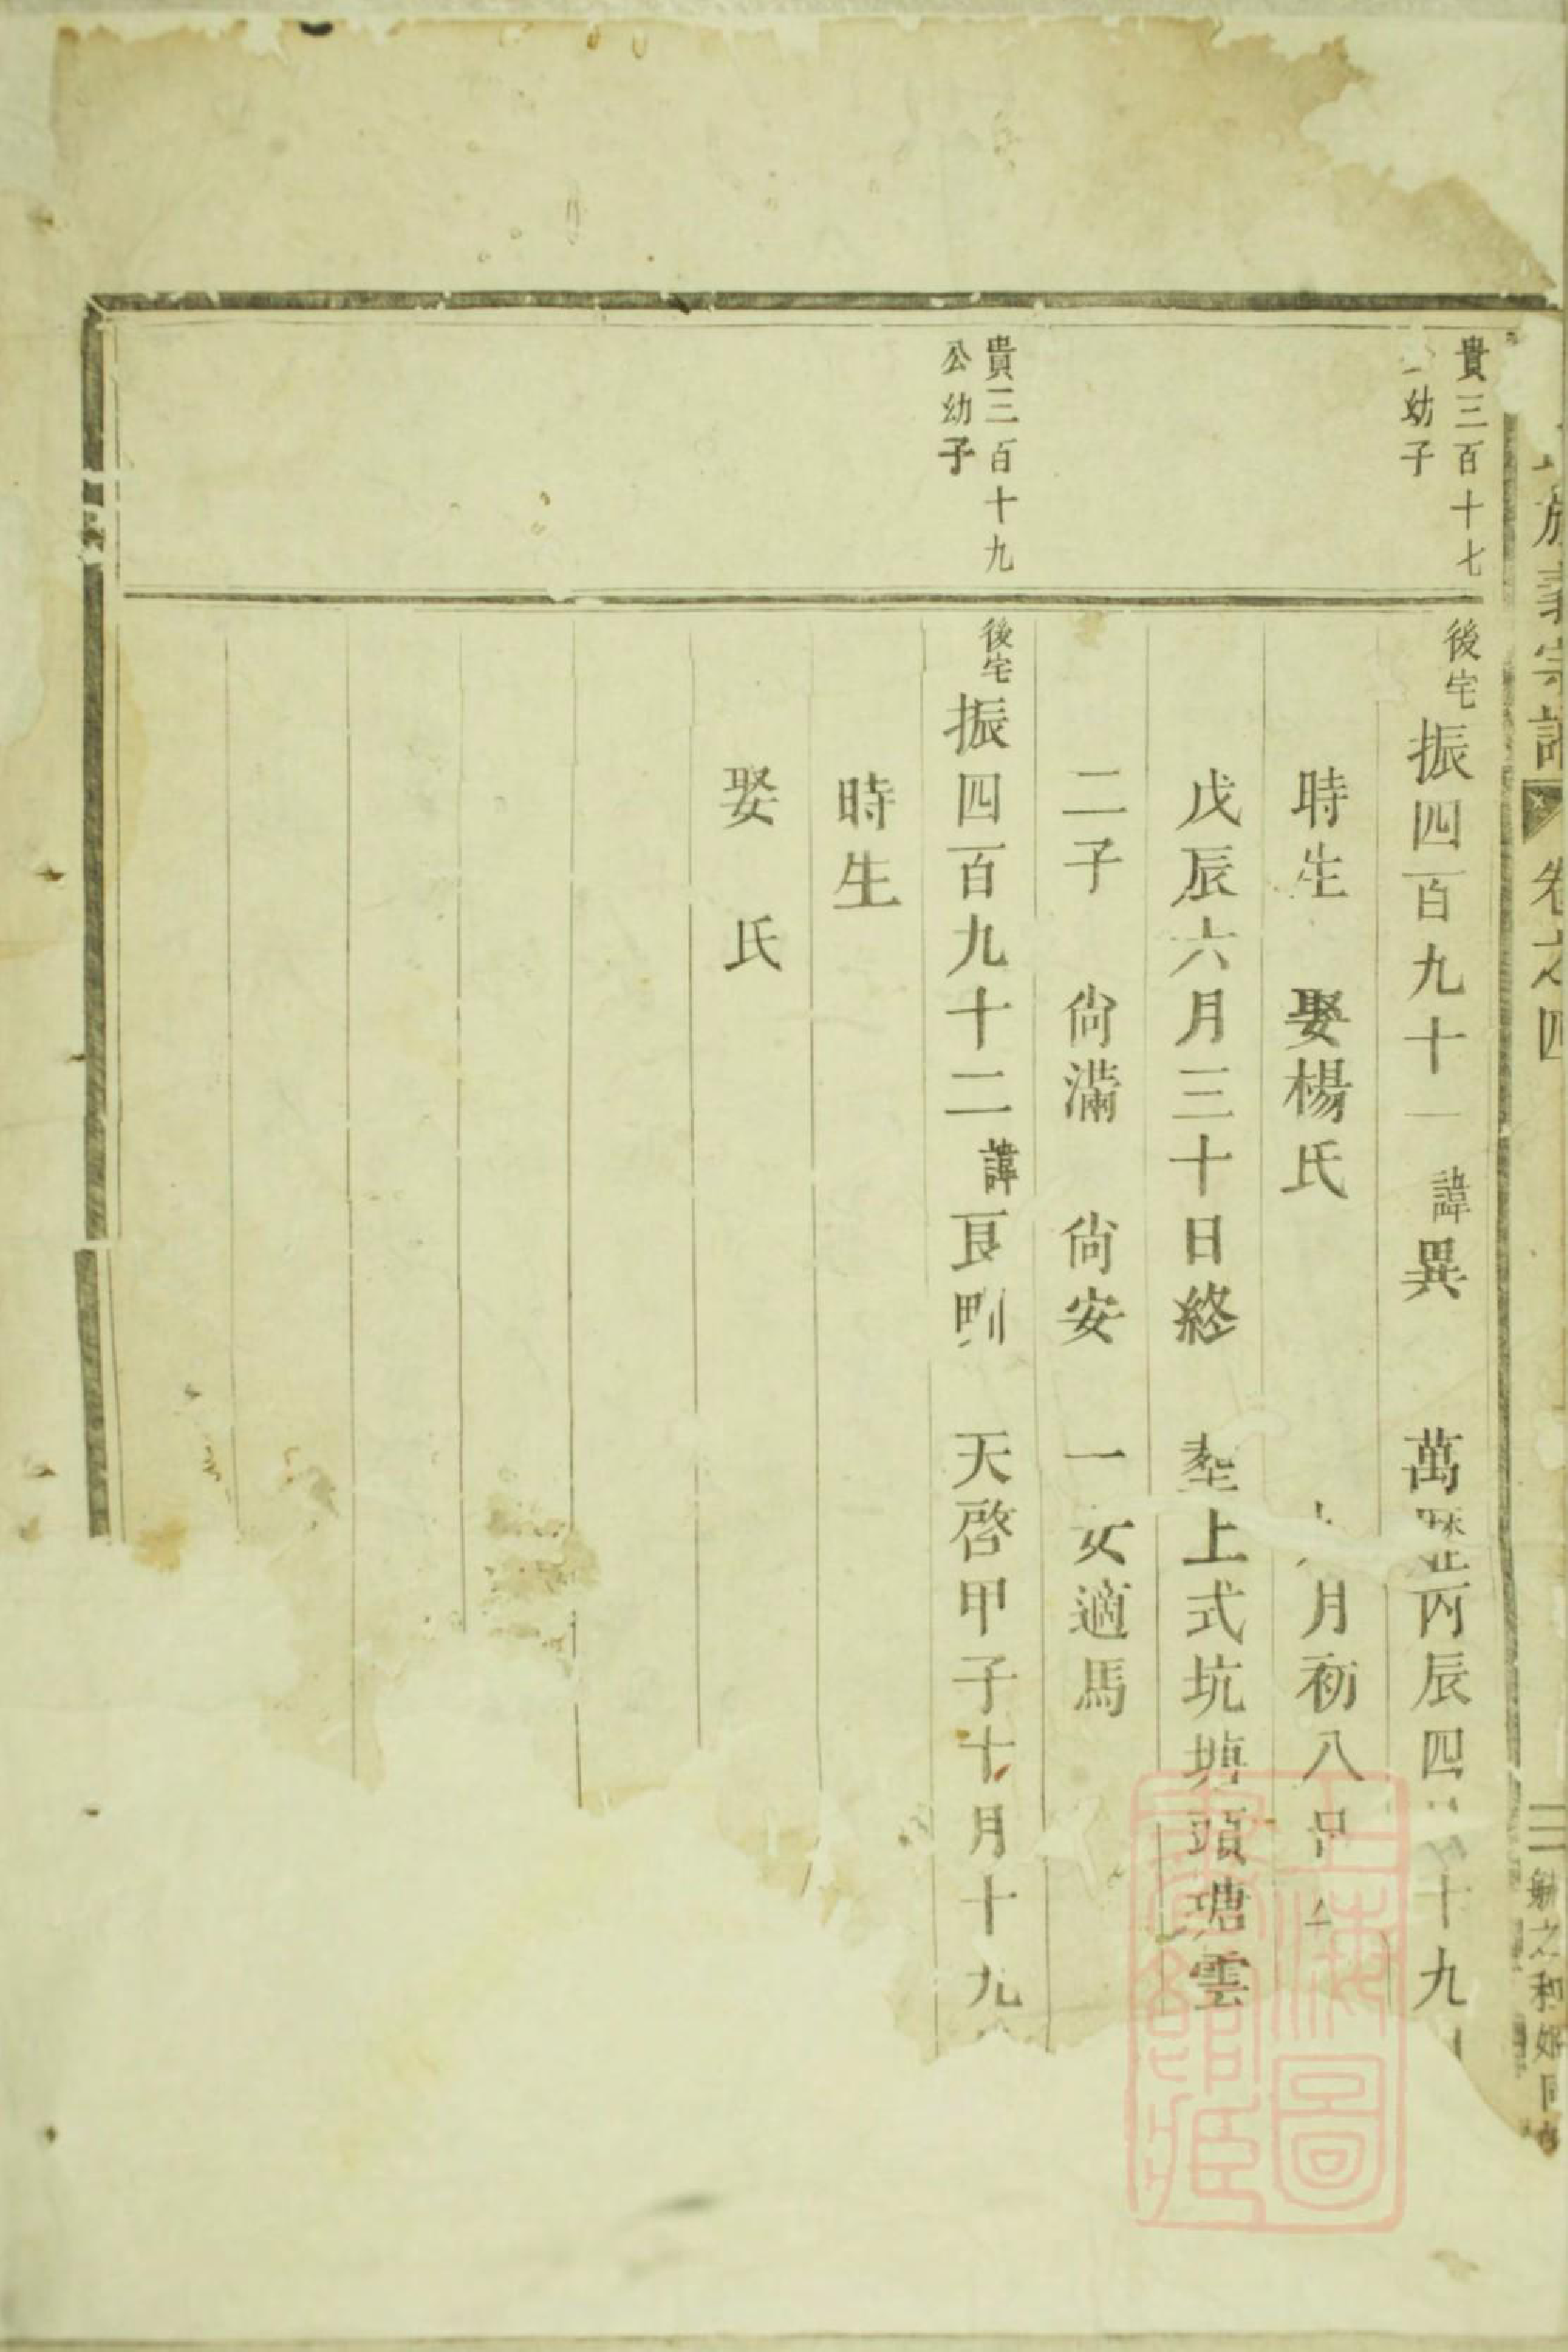 宗譜
卷之四
三
之和
貴三百十七
幼子
後宅振四百九十一 諱異 萬歷丙辰四 十九
時生 娶楊氏 月初八
戊辰六月三十日終 塟上式坑塘頭塘雲
二子 尙滿 尙安 一女適馬
貴三百十九
公幼子
後宅振四百九十二諱良 天啓甲子十月十九
時生
娶 氏
上海圖書館藏